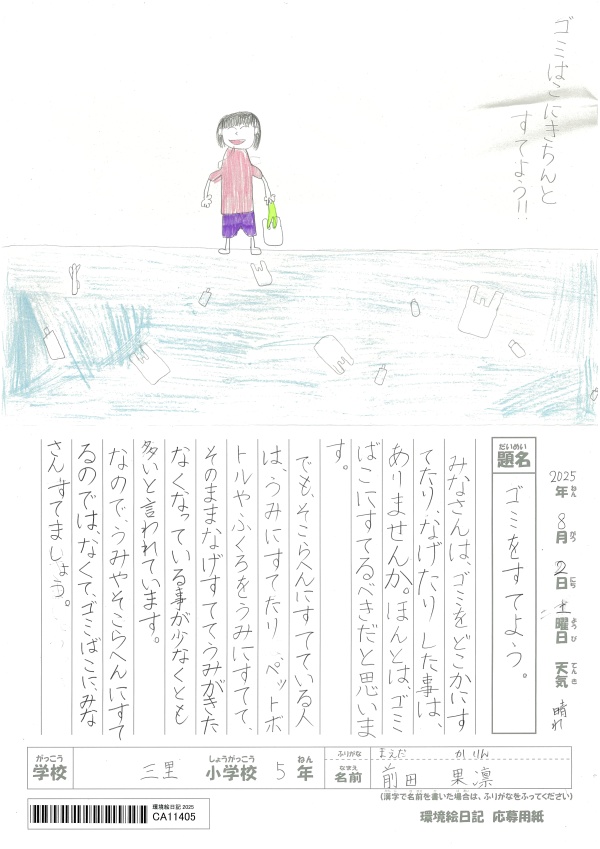 ゴミばこにきちんと
すてよう!!
2025年8月2日土曜日 天気 晴れ
ねん がつ にち ようび てんき
だいめい
題名 ゴミをすてよう。
みなさんは、ゴミをどこかにす
てたり、なげたりした事は、
ありませんか。ほんとは、ゴミ
ばこにすてるべきだと思いま
す。
でも、そこらへんにすてている人
は、うみにすてたり ペットボ
トルやふくろをうみにすてて、
そのままなげすててうみがきた
なくなっている事が少なくとも
多いと言われています。
なので、うみやそこらへんにすて
るのでは、なくて、ゴミばこに、みな
さんすてましょう。
がっこう しょうがっこう ねん
学校 三里 小学校 5年
ふりがな まえだ かりん
なまえ
名前 前田 果凛
(漢字で名前を書いた場合は、ふりがなをふってください)
環境絵日記 2025
CA11405
環境絵日記 応募用紙